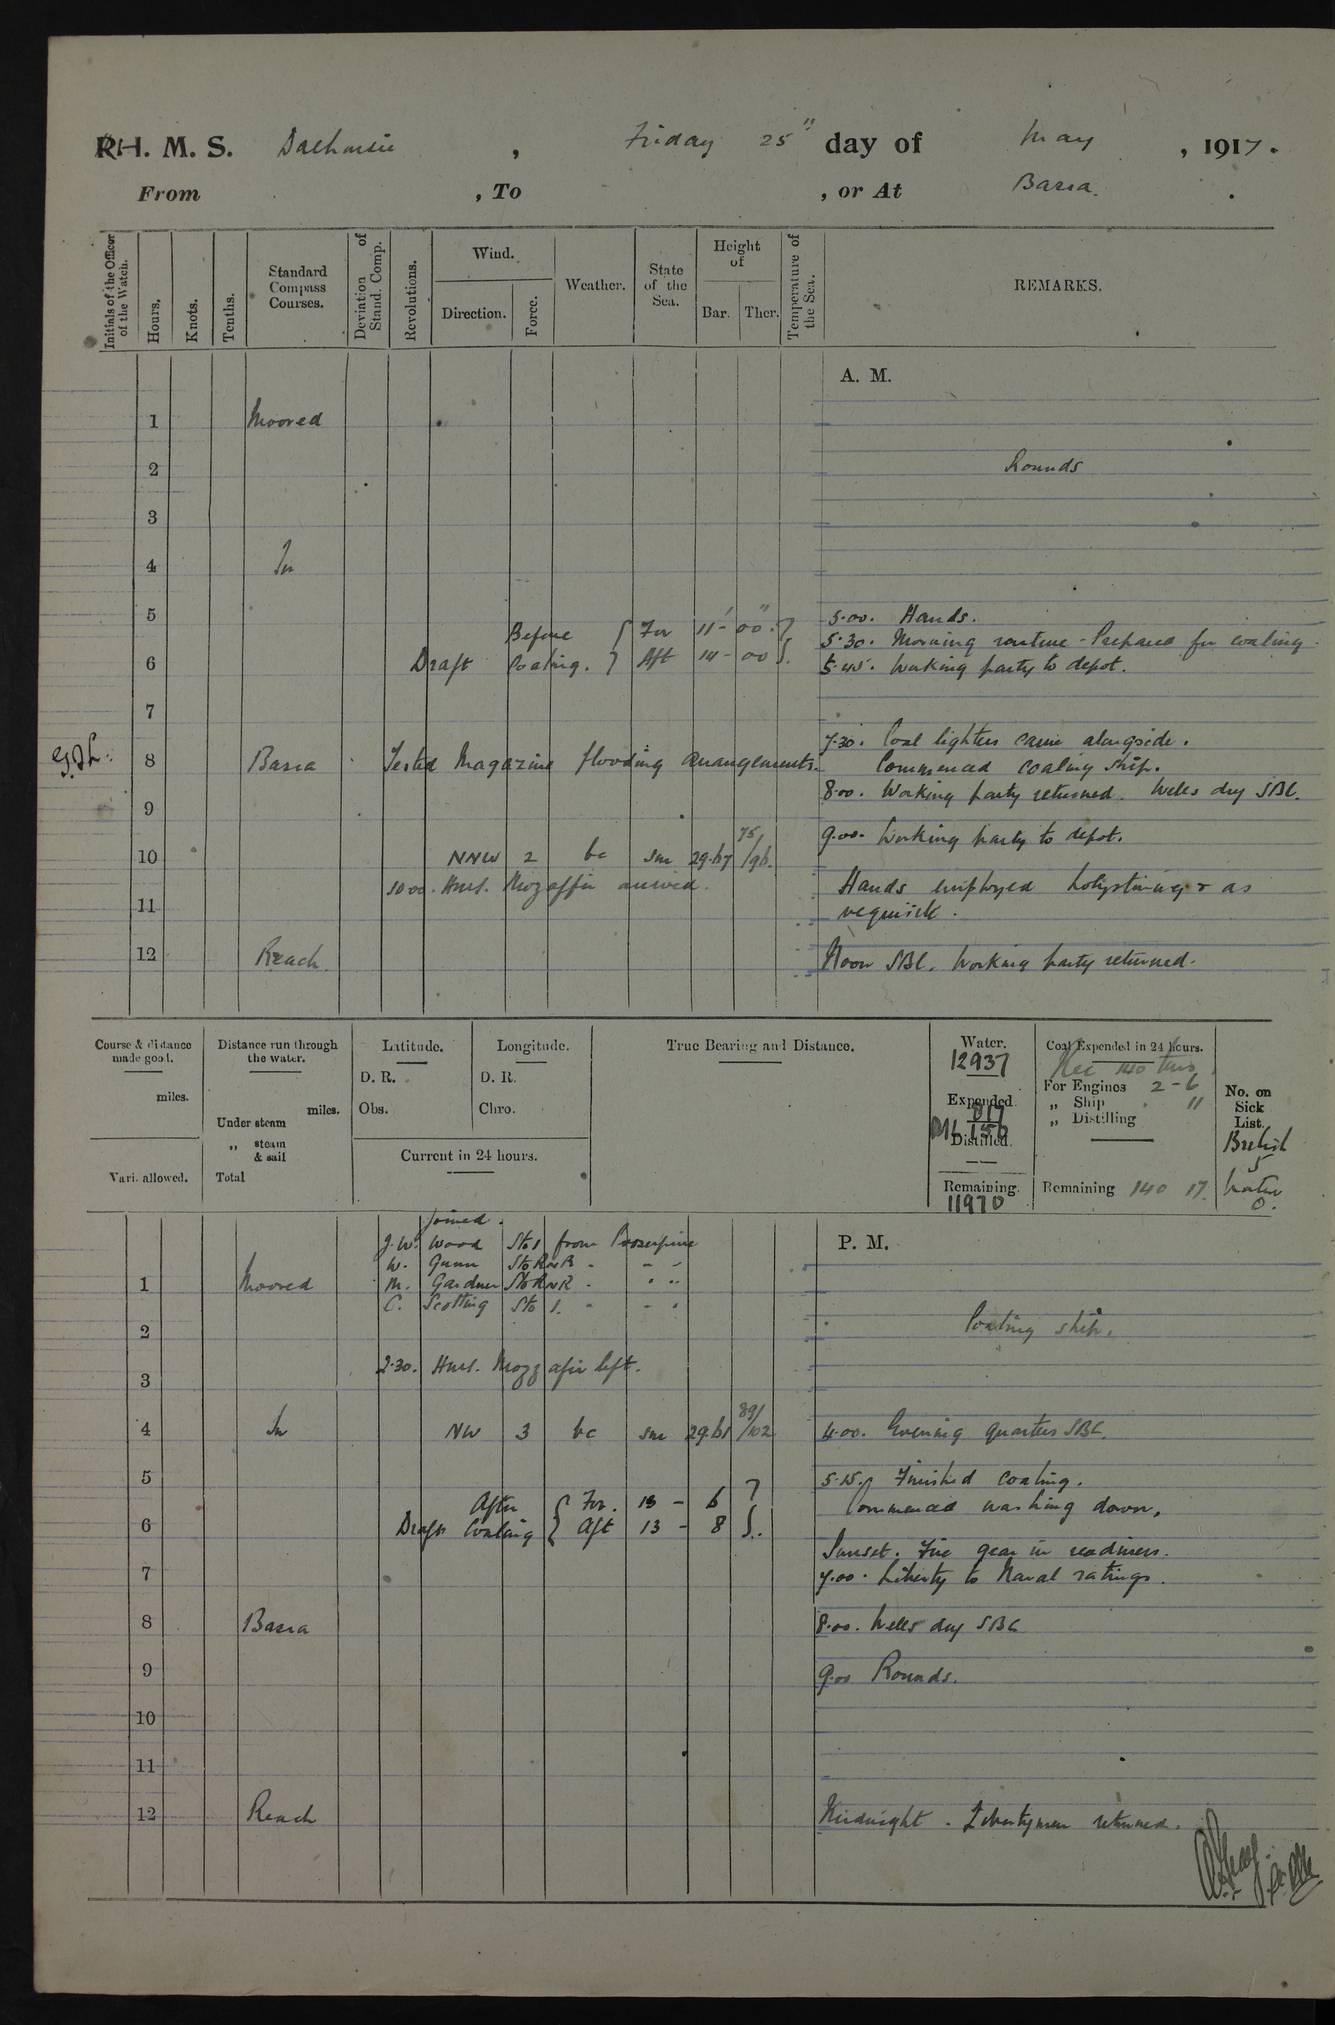 R.H. M. S. Dalhousie , Friday 25" day of May , 1917.
From , To , or At Basra.
Initials of the Officer of the Watch.
Hours.
Knots.
Tenths.
Standard Compass Courses.
Deviation of Stand. Comp.
Revolutions.
Wind.
Direction.
Force.
Weather.
State of the Sea.
Height of
Bar.
Ther.
Temperature of the Sea.
REMARKS.
A. M.
1 Moored
2 Rounds
3
4 In
5 5.00. Hands.
Before For 11' - 00" 5.30. Morning routine - Prepared for coaling.
6 Draft Coaling. Aft 14 - 00 5.45. Working party to depot.
7
7.30. Coal lighters came alongside.
8 Basra Tested Magazine flooding arrangements. Commenced coaling ship.
8.00. Working party returned. Wells dry SBC.
9
9.00. Working party to depot.
10 NNW 2 bc sm 29.67 75/96.
10.00. H.M.S. Mozaffir arrived. Hands employed holystoning & as
11 requisite.
12 Reach. Noon SBC. Working party returned.
Course & distance made good.
miles.
Vari. allowed.
Distance run through the water.
miles.
Under steam
„ steam & sail
Total
Latitude.
D. R.
Obs.
Longitude.
D. R.
Chro.
Current in 24 hours.
True Bearing and Distance.
Water.
12937
Expended.
817
Distilled.
Remaining.
11970
Coal Expended in 24 hours.
Rec 140 tons
For Engines 2 - 6
„ Ship "
„ Distilling
Remaining 140 17.
No. on Sick List.
British
5
Native
0.
P. M.
Joined.
J. W. Wood Sto 1 from Proserpine
W. Gunn Sto RNR - - -
1 Moored M. Gardner Sto RNR - " "
C. Scotting Sto 1. - - "
2 Coaling ship.
2.30. H.M.S. Mozzafir left.
3
4 In NW 3 bc sm 29.61 89/102 4.00. Evening quarters SBC.
5 5.15. Finished coaling.
After For. 13 - 6 Commenced washing down.
6 Draft Coaling Aft 13 - 8
Sunset. Fire gear in readiness.
7 7.00. Liberty to Naval ratings.
8 Basra 8.00. Wells dry SBC
9 9.00 Rounds.
10
11
12 Reach Midnight. Libertymen returned.